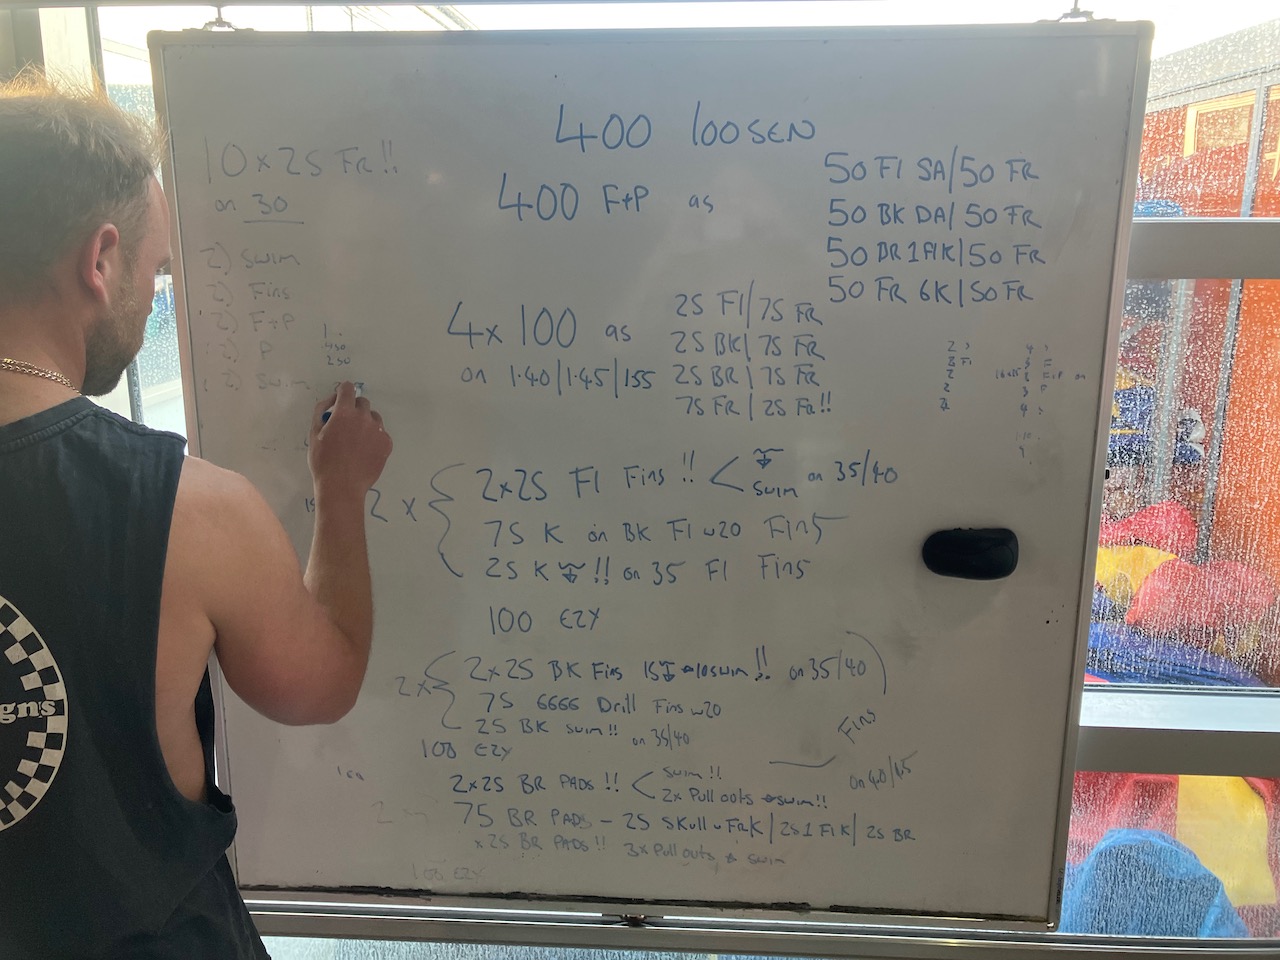 400 loosen
400 F+P as
50 Fl SA/50 FR
50 BK DA/50 FR
50 BR 1FlK/50 FR
50 FR 6K/50 FR
4x100 as
on 1.40/1.45/1.55
25 Fl/75 FR
25 BK/75 FR
25 BR/75 FR
75 FR/25 FR!!
2x
2x25 Fl Fins!! < swim on 35/40
75 K on BK Fl w20 Fins
25 K !! on 35 Fl Fins
100 EZY
2x
2x25 BK Fins 15 10swim!! on 35/40
75 6666 Drill Fins w20
25 BK swim!! on 35/40
Fins
100 EZY
2x25 BR PADS!! < swim!!
2x Pull outs swim!!
on 40/45
75 BR PADS - 25 SKull w FRK/25 1 FlK/25 BR
x25 BR PADS!! 3x Pull outs swim
100 EZY
10x25 FR!!
on 30
2) Swim
2) Fins
2) F+P
2) P
2) Swim
gns